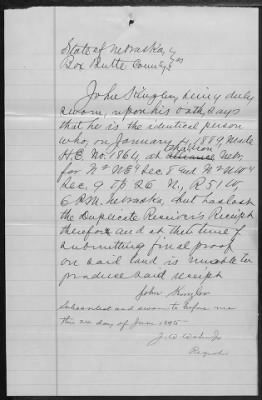 State of Nebraska } ss
Box Butte County }
John Stingley being duly
sworn, upon his oath, says
that he is the identical person
who, on January 4, 1889, Made
H.E. No. 1864, at Chadron Neb,
for N½ NE¼ Sec 8 and N½ NW¼
Sec. 9 Tp 26 N., R 51 W,
6 P.M. Nebraska, but has lost
the Duplicate Receiver's Receipt
therefor and at the time of
submitting final proof
on said land is unable to
produce said receipt
John
Subscribed and sworn to before me
this day of June 1895
J. W.